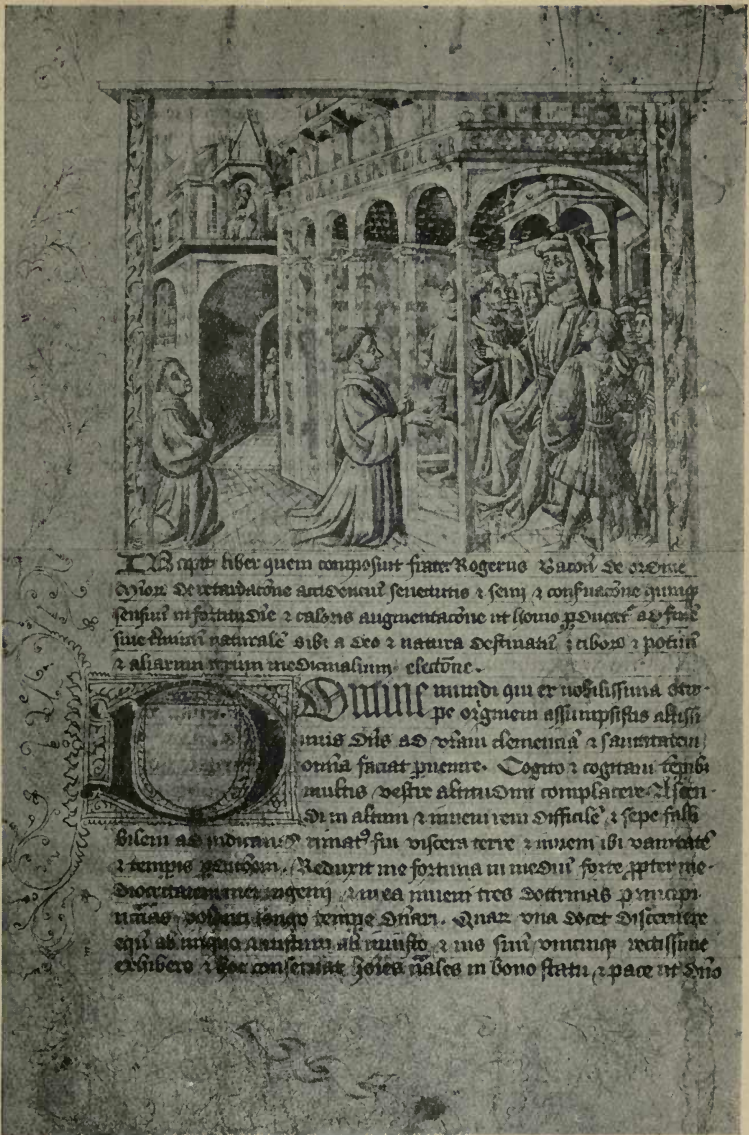 Incipit liber quem composuit frater Rogerus Bacon de ordine
minor de retardacōne accidenciū senectutis ⁊ senij ⁊ cōseruacōne quinq
sensuū in fortitudīe ⁊ caloris augmentacōne ut homo pducat ad finē
siue t̄minū naturalē sibi a deo ⁊ natura destinatū ⁊ ciborū ⁊ potuū
⁊ aliarum rerum medicinalium electōne.
Domine mundi qui ex nobilissima stir-
pe originem assumpsistis altissi
mus dn̄s ad vr̄am clemenciā ⁊ sanitatem
omnia faciat puenire. Cogito ⁊ cogitaui tēpibȝ
multis vestre altitudini complacere. Ascen-
di in altum ⁊ inueni rem difficilē ⁊ sepe falli
bilem ad iudicand rimatꝰ fui viscera terre ⁊ inueni ibi vanitatē
⁊ tempis pdicōem. Reduxit me fortuna in mediū forte ppter me-
diocritatem mei ingenij ⁊ in ea inueni tres doctrinas principi
longo tempe Quar vna docet discernere
equū ab iniquo iustum ab iniusto ⁊ ius suū vnicuiqȝ rectissime
exhibere ⁊ hoc conseruat hoīes in bono statu ⁊ pace ut